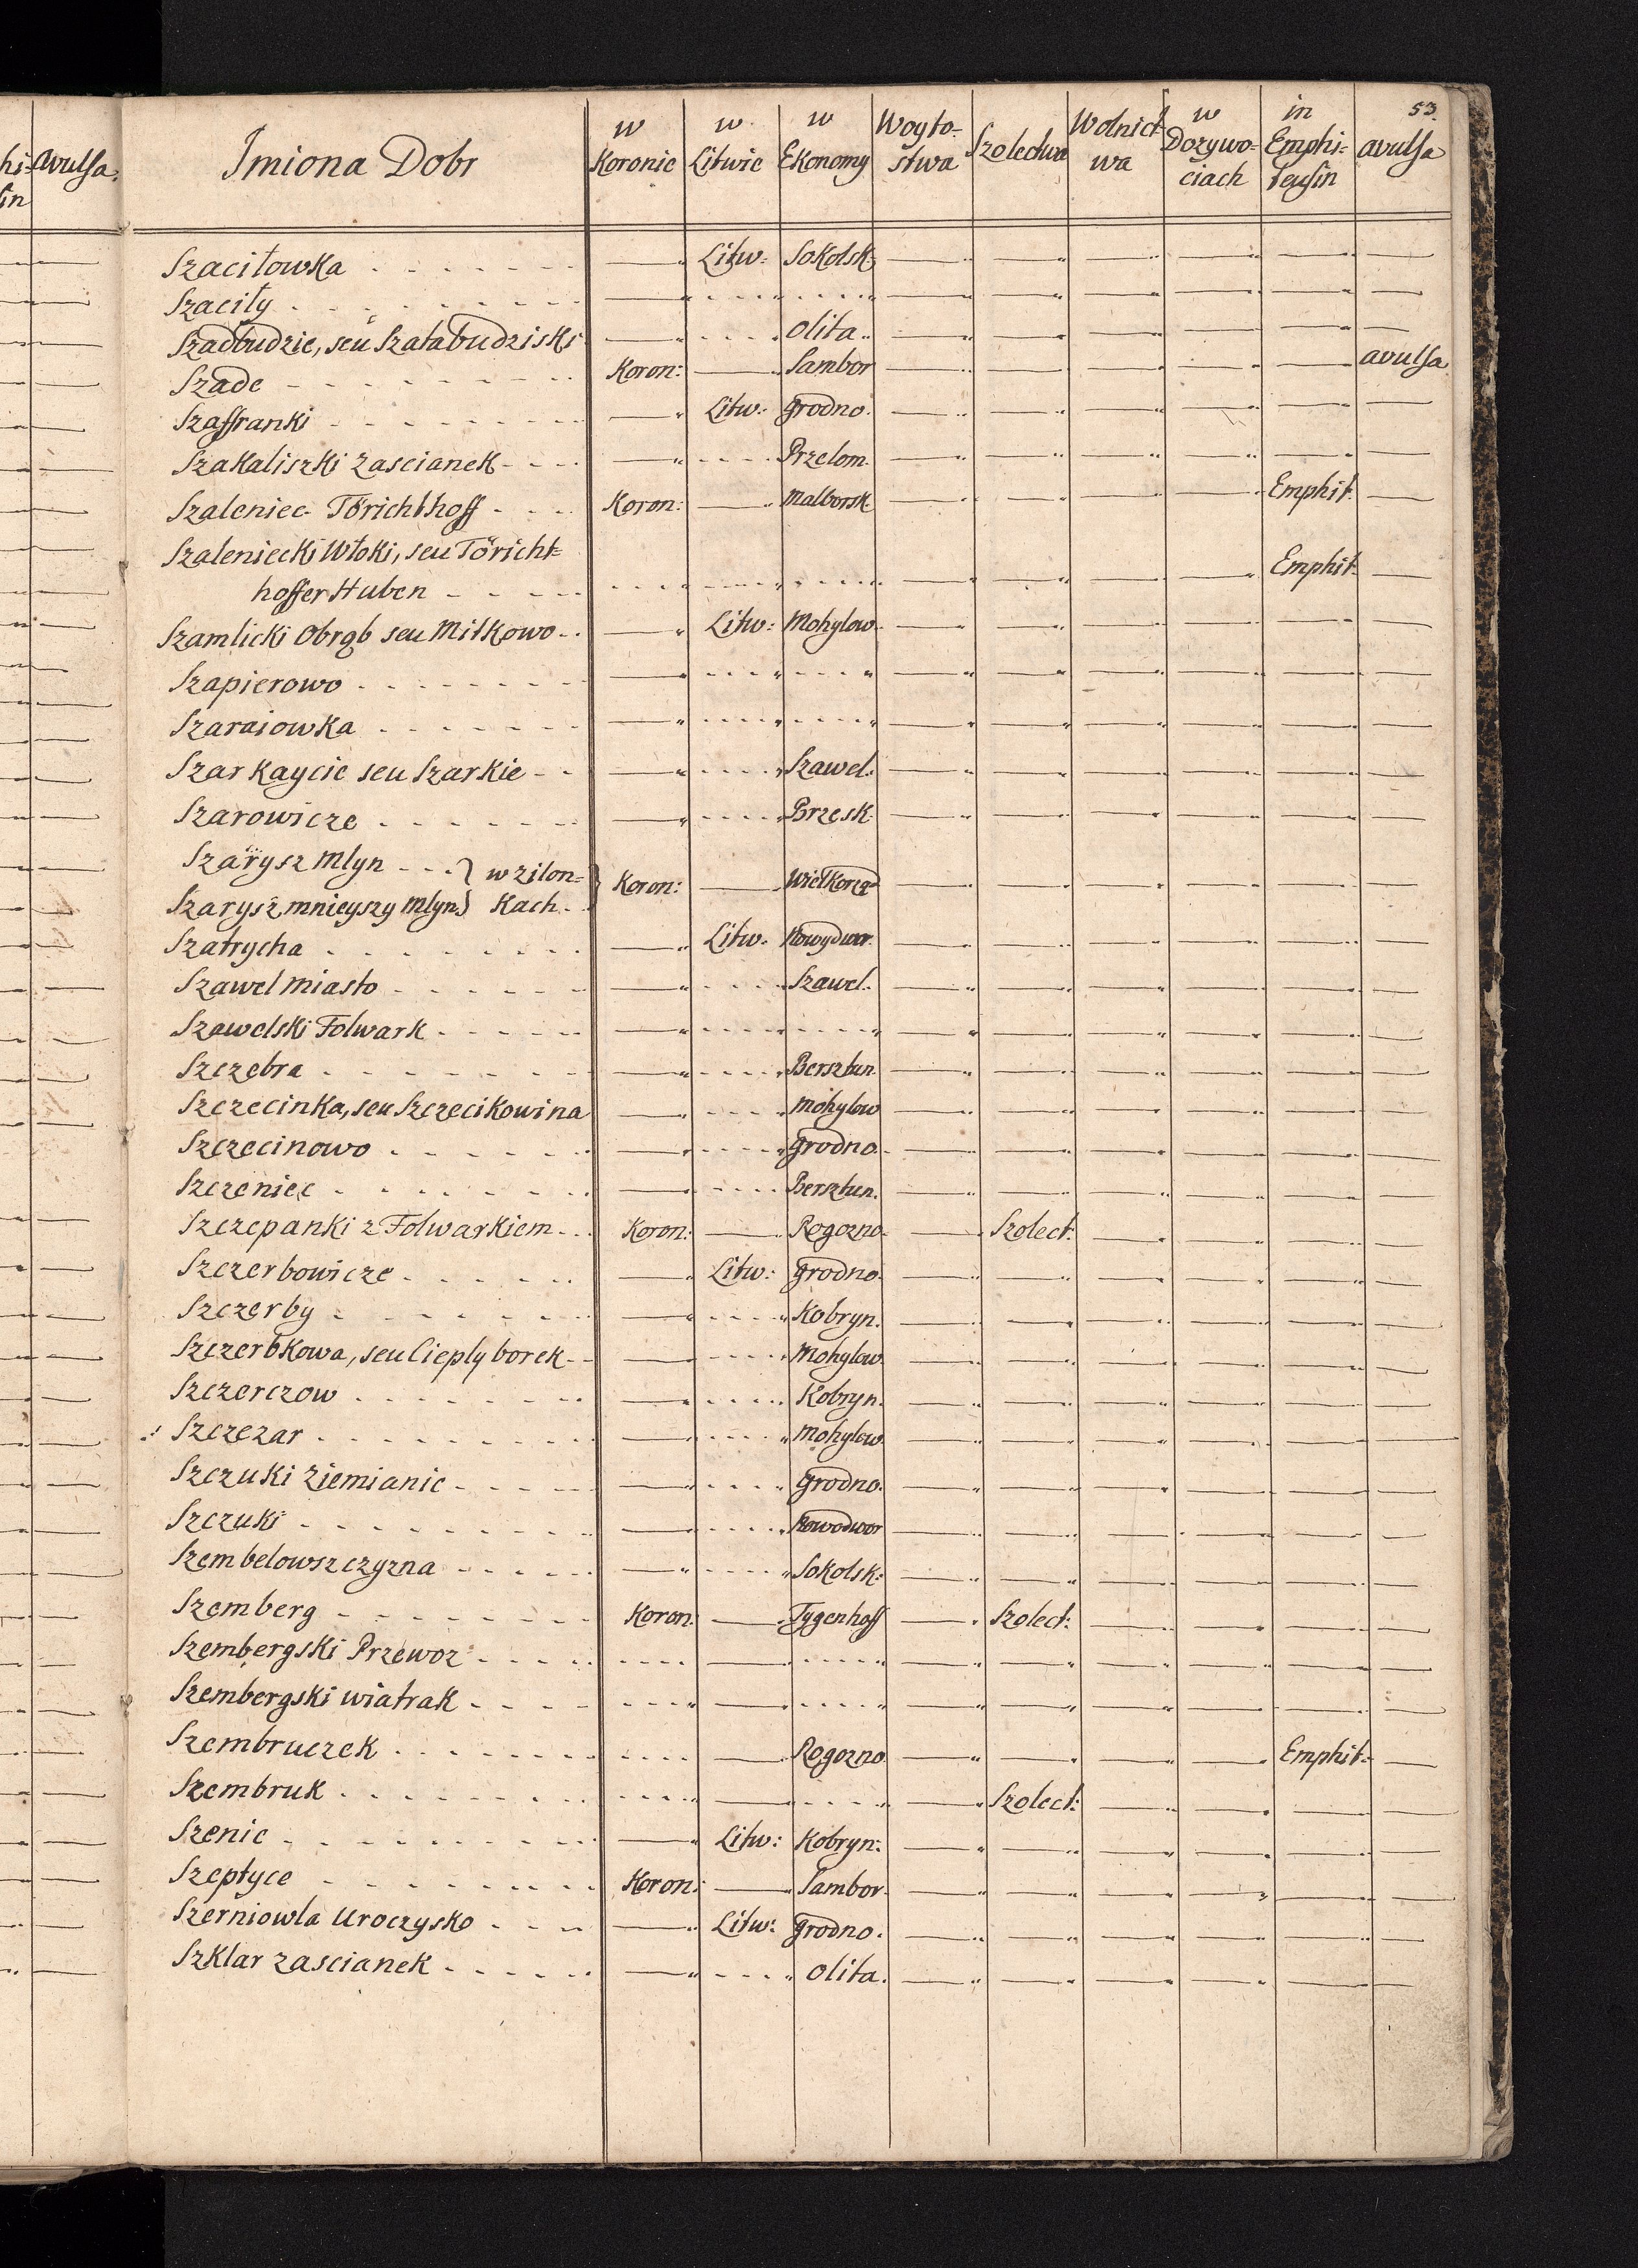 53.
hi- avulsa.
sin
Imiona Dobr w Koronie w Litwie w Ekonomy Woyto-stwa Szolectwa Wolnict-wa w Dozywo-ciach in Emphi-teusin avulsa
Szaciłowka Litw: Sokolsk:
Szaciły
Szadbudzie, seu Szatabudziski Olita.
Szade Koron: Sambor avulsa
Szaffranki Litw: Grodno.
Szakaliszki zascianek Przelom.
Szaleniec Törichthoff Koron: Malborsk. Emphit.
Szaleniecki Włoki, seu Töricht=
hoffer Huben Emphit.
Szamlicki Obrąb seu Miłkowo Litw: Mohylow.
Szapierowo
Szaraiowka
Szarkaycie seu Szarkie Szawel:
Szarowicze Brzesk:
Szarysz Mlyn } w zilon=
Szarysz mnieyszy Mlyn } kach. Koron: Wielkorzą
Szatrycha Litw: Nowydwor.
Szawel Miasto Szawel.
Szawelski Folwark
Szczebra Bersztun.
Szczecinka, seu Szczecikowina Mohylow
Szczecinowo Grodno.
Szczeniec Bersztun.
Szczepanki z Folwarkiem Koron: Rogozno. Szolect:
Szczerbowicze Litw: Grodno.
Szczerby Kobryn.
Szczerbkowa, seu Cieply borek Mohylow
Szczerczow Kobryn.
Szczezar Mohylow.
Szczuki Ziemianie Grodno.
Szczuki Nowodwor
Szembelowszczyzna Sokolsk:
Szemberg Koron: Tygenhoff Szolect:
Szembergski Przewoz
Szembergski wiatrak
Szembruczek Rogozno Emphit:
Szembruk Szolect:
Szenie Litw: Kobryn:
Szeptyce Koron: Sambor.
Szerniowla Uroczysko Litw: Grodno.
Szklar zascianek Olita.